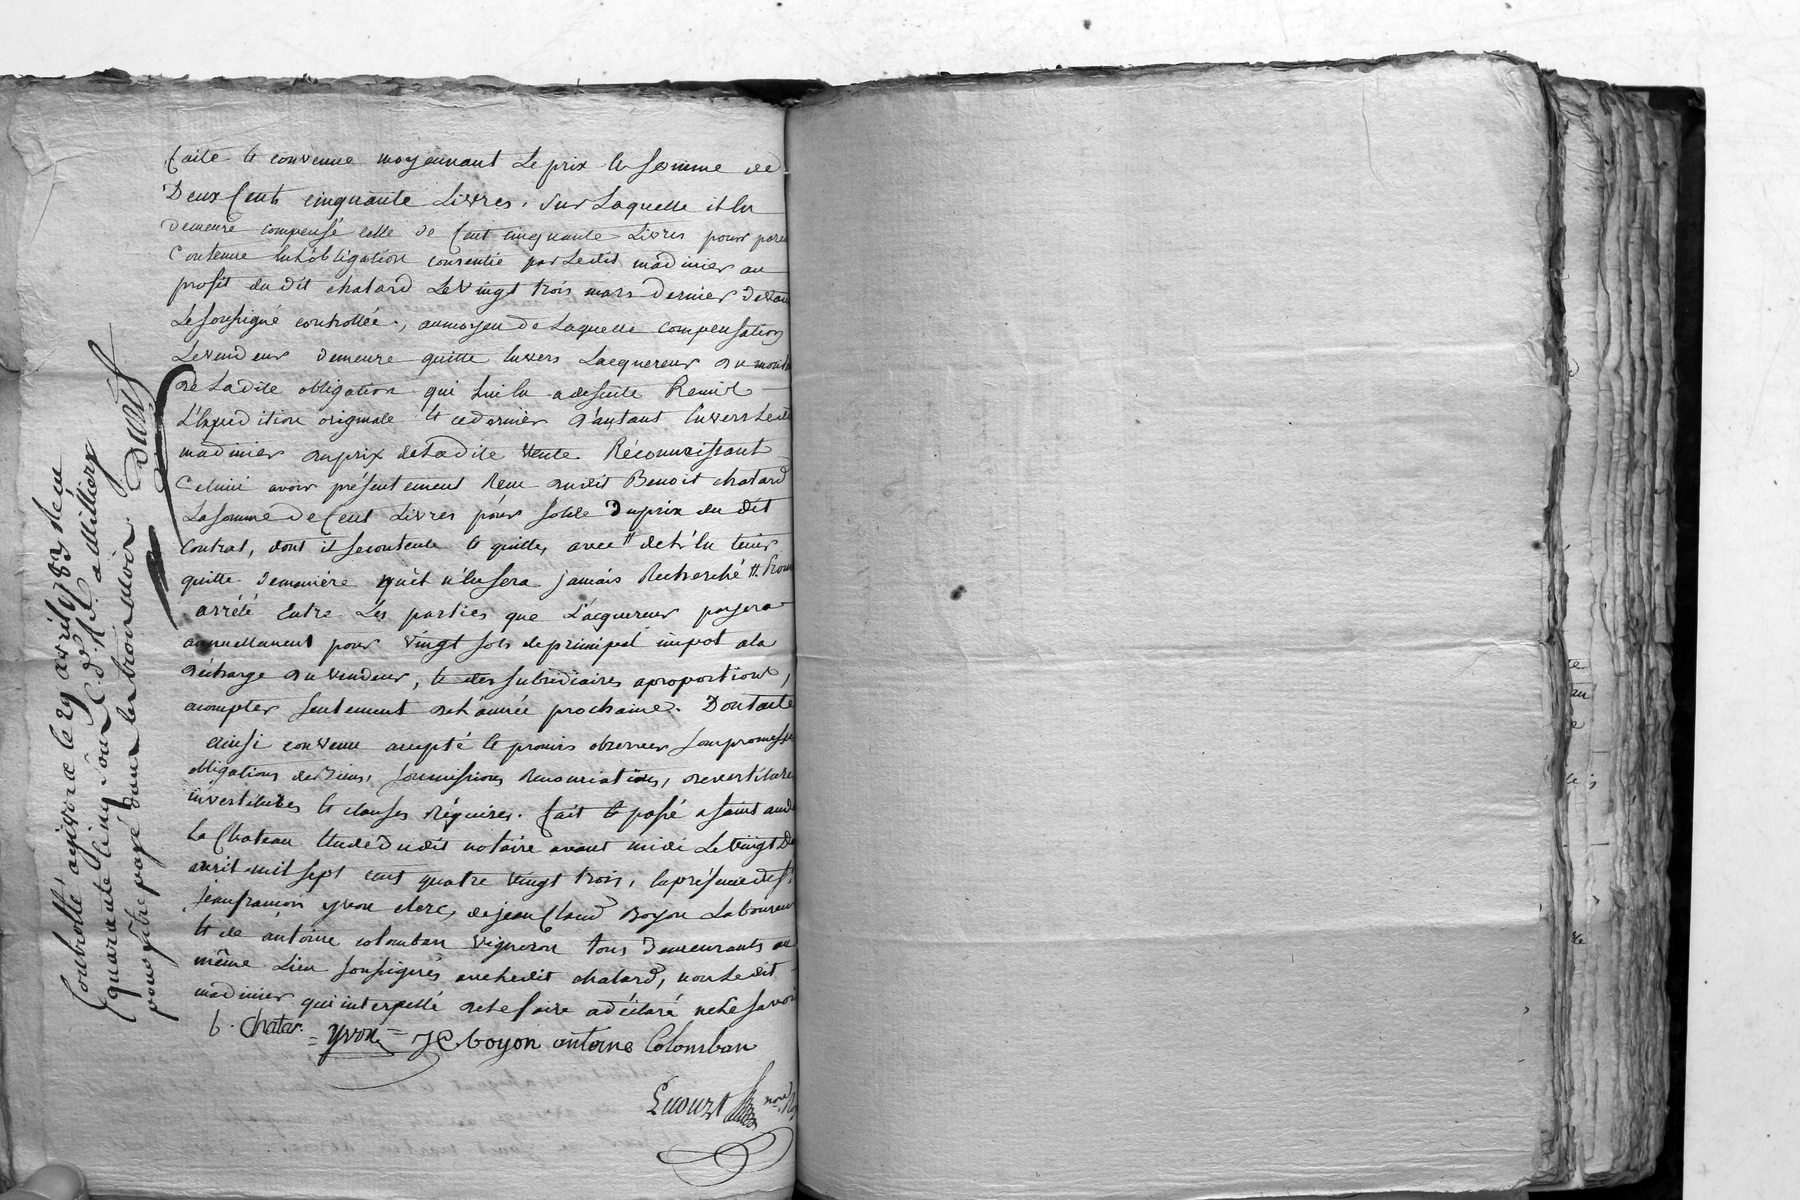 faite et convenue moyennant le prix et somme de
Deux Cents cinquante Livres, sur Laquelle il en
demeure compensé celle de Cent cinquante Livres pour pareille
Contenue En l'obligation consentie par Ledit madinier au
profit du dit chatard Le vingt trois mars dernier devant
Le soussigné controllée, aumoyen de Laquelle compensation
Levendeur demeure quitte Envers Lacquereur du montant
de Ladite obligation qui lui en a desuite Remis
L'Expedition originale et cedernier d'autant Envers Ledit
madinier duprix deLadite vente Réconnoissant
Celuici avoir présentement Reçu dudit Benoit chatard
La somme de Cent Livres pour solde duprix du dit
Contrat, dont il secontente et quitte, avec de l'en tenir
quitte demanière qu'il n'en sera jamais Recherché
arrété Entre Les parties que L'acquereur payera
annuellement pour vingt sols deprincipal impot ala
décharge du vendeur, et des subsidiaires aproportion,
acompter seulement del'année prochaine. Dontacte
ainsi convenu accepté et promis observer sous promesses
obligations de biens, soumissions Renonciations, devestitures
investitures et clauses Réquises. fait et passé a saint andé
La Chateau Etude dudit notaire avant midi Le vingt
avril mil sept cent quatre vingt trois, En présence de s.r
jeanfrancois yvon clerc, de jean Claud boyon Laboureur
Et de antoine colomban vigneron tous demeurants au
même Lieu soussignés avec ledit chatard, non Ledit
madinier qui interpellé dele faire adéclaré nele savoir
b. Chatar.
= yvon = JC boyon antoine Colomban
not.re Roy
Controllé agivors le 29 avril 1783 Reçu
quarante cinq sous C.d.M.C. a Milliery
pour être payé dans les trois mois.